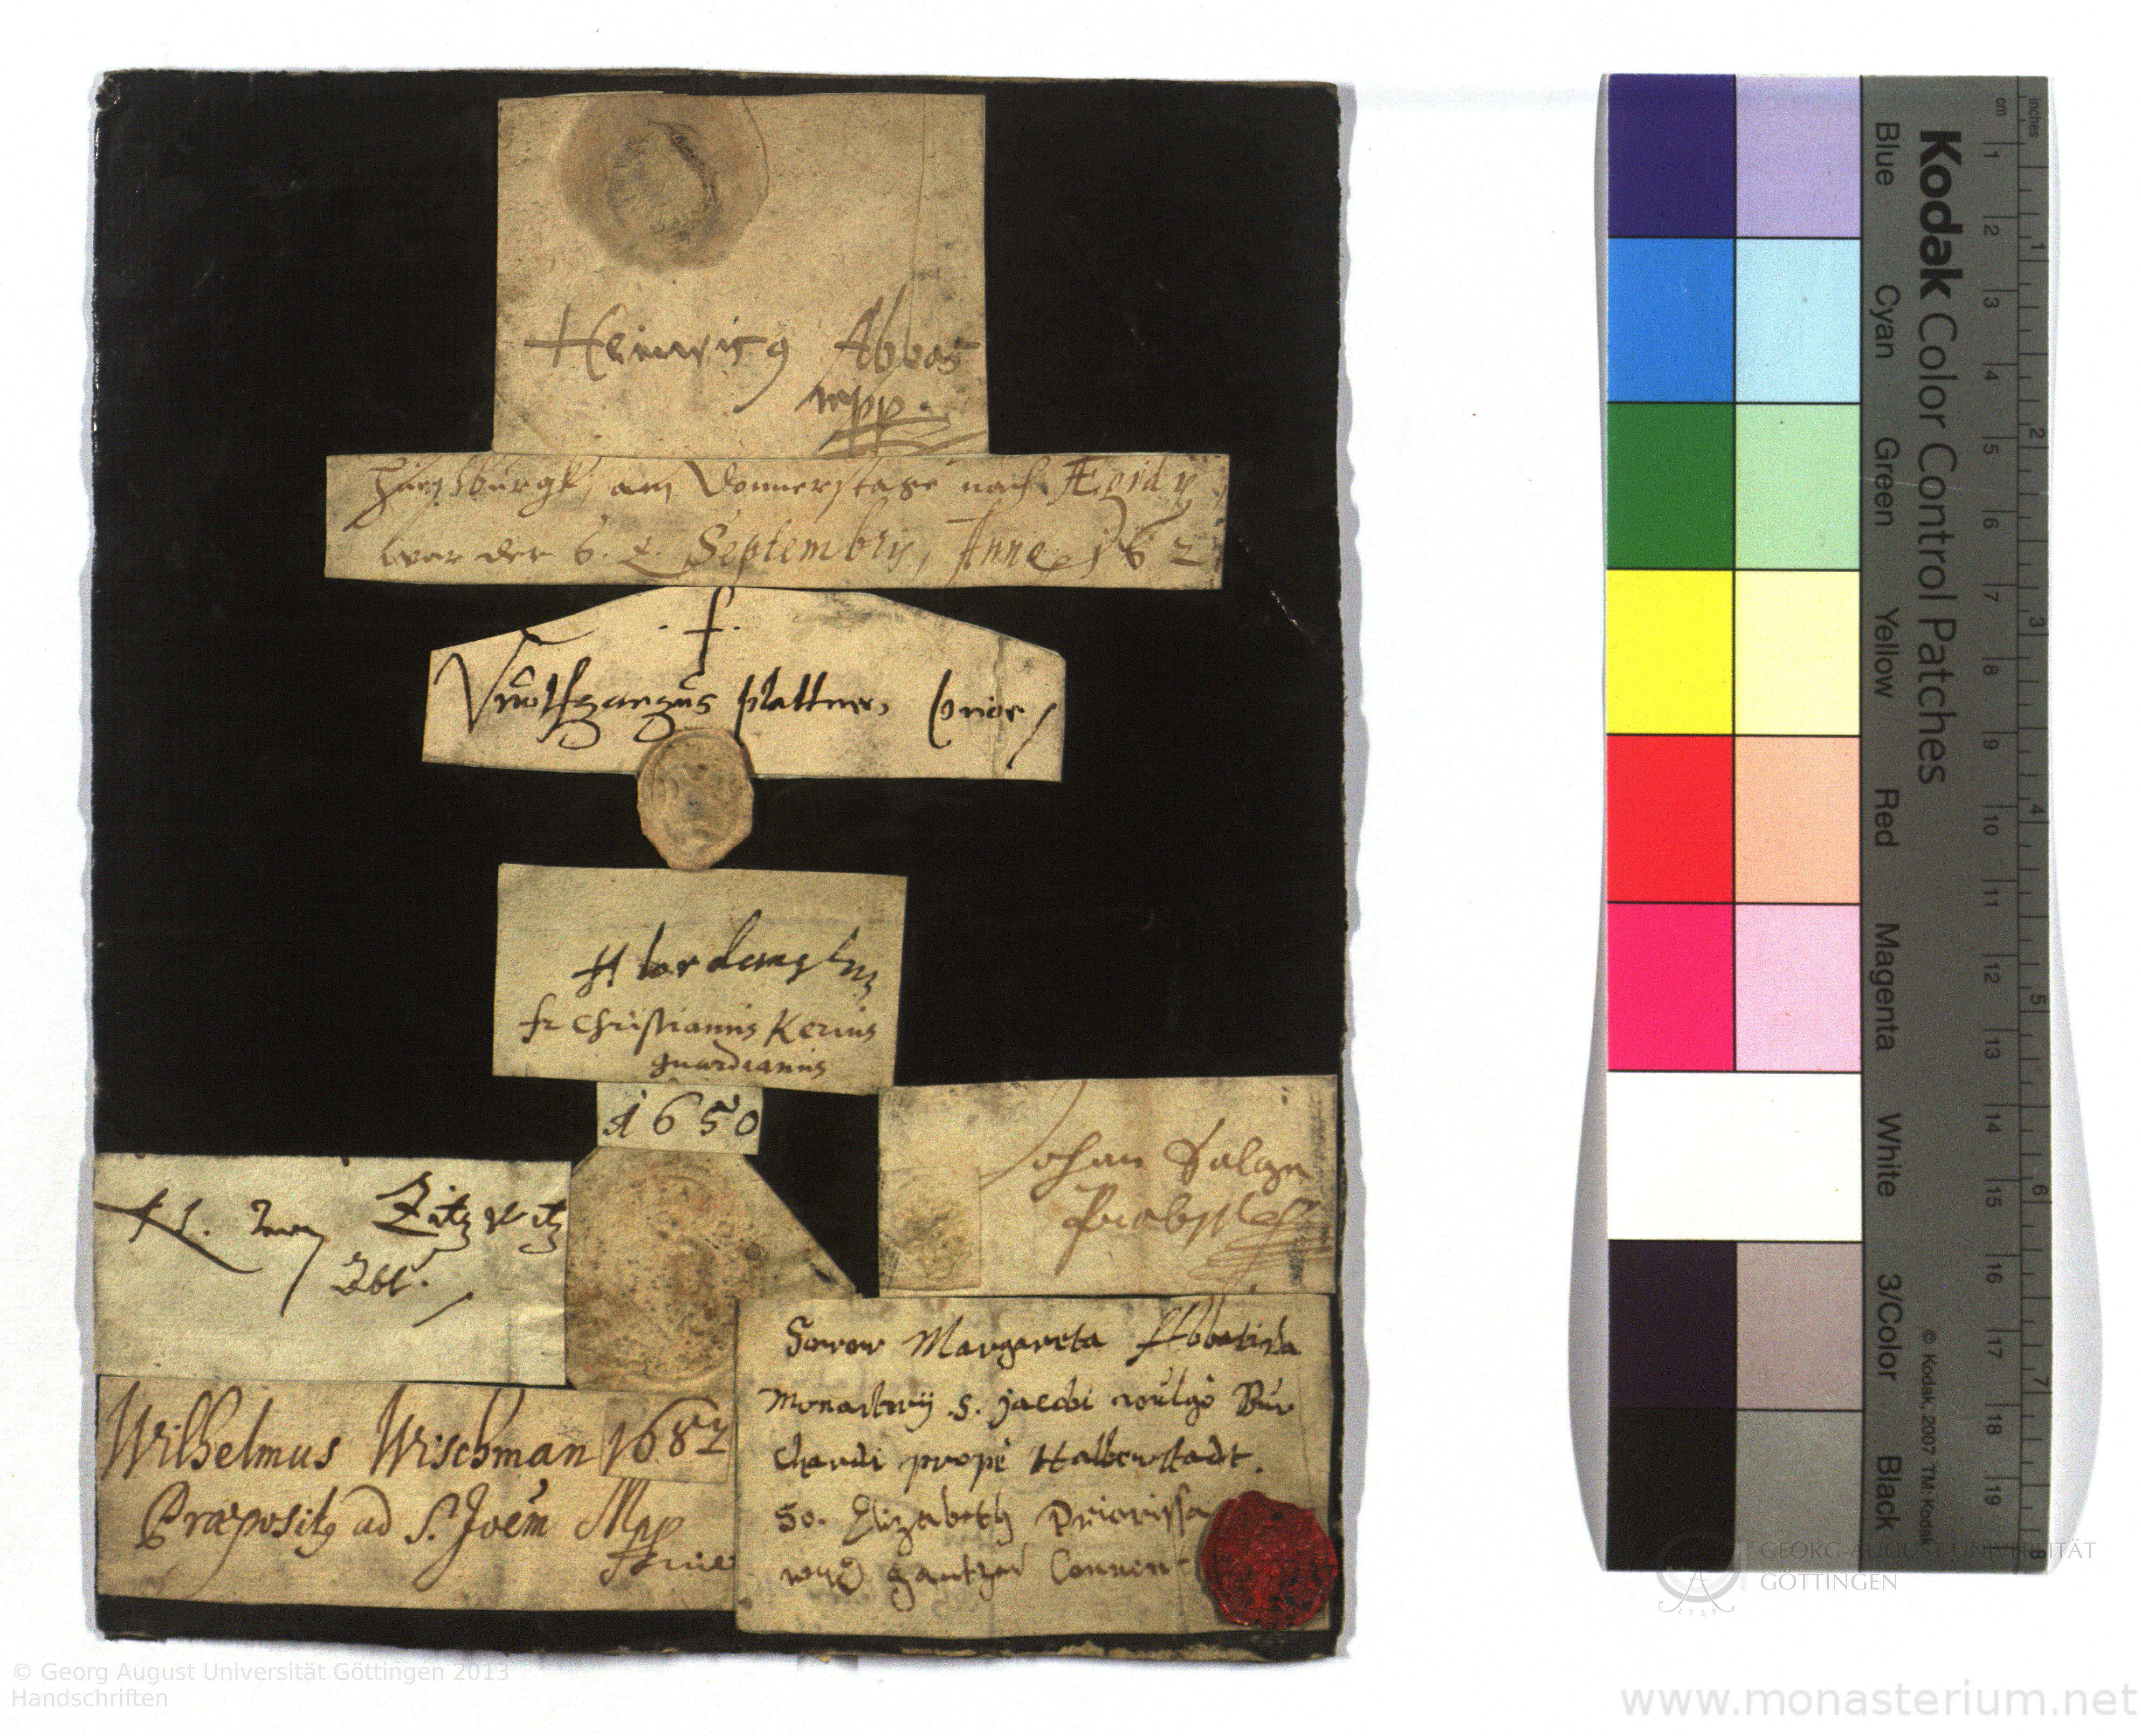 Abbas
mpp.
am Donnerstage nach Ægidy
war der 6. Septembris, Anno 162
. f.
Wolfgangus plattner, prior
fr Christianus Kerius
guardianus
1650
Johan
Zitzwitz
Abt.
Wilhelmus Wischman 1682
Præposit9 ad S. Joem Mpp
Soror Margareta Abbatissa
Monasterij S. Jacobi vulgo Bur
chardi prope Halberstadt.
So. Elizabeth Priorissa
und gantzer Convent
Kodak Color Control Patches
Blue Cyan Green Yellow Red Magenta White 3/Color Black
© Kodak, 2007 TM: Kodak
inches
1 2 3 4 5 6 7 8
cm
1 2 3 4 5 6 7 8 9 10 11 12 13 14 15 16 17 18 19
GEORG-AUGUST-UNIVERSITÄT
GÖTTINGEN
© Georg August Universität Göttingen 2013
Handschriften
www.monasterium.net